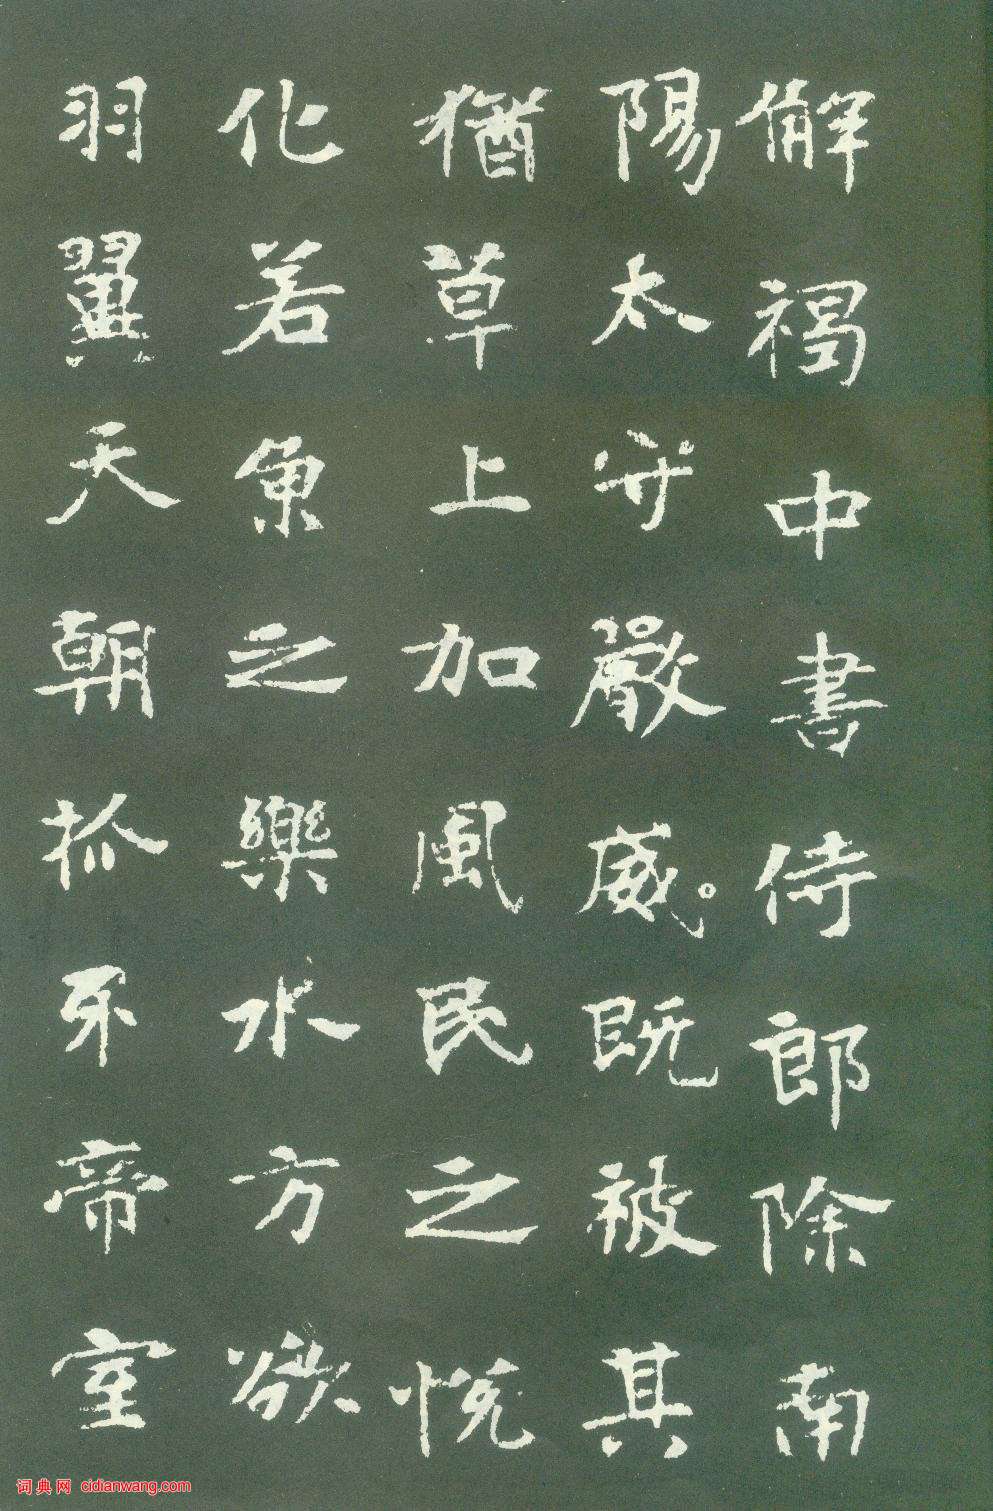 解褐中書侍郎除南
陽太守嚴威既被其
猶草上加風民之悅
化若魚之樂水方欲
羽翼天朝抓牙帝室
词典网 cidianwang.com